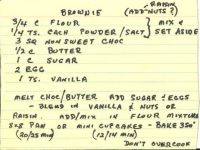 BROWNIE RAISIN
(ADD NUTS?)
3/4 C FLOUR } MIX &
1/4 TS. EACH POWDER/SALT } SET ASIDE
3 SQ NON SWEET CHOC
1/2 C BUTTER
1 C SUGAR
2 EGG
1 TS. VANILLA
MELT CHOC/BUTTER ADD SUGAR & EGGS
- BLEND IN VANILLA & NUTS OR
RAISIN. ADD/MIX IN FLOUR MIXTURE
8x8 PAN OR MINI CUPCAKES - BAKE 350°
(20/25 MIN) (12/14 MIN)
DON'T OVERCOOK